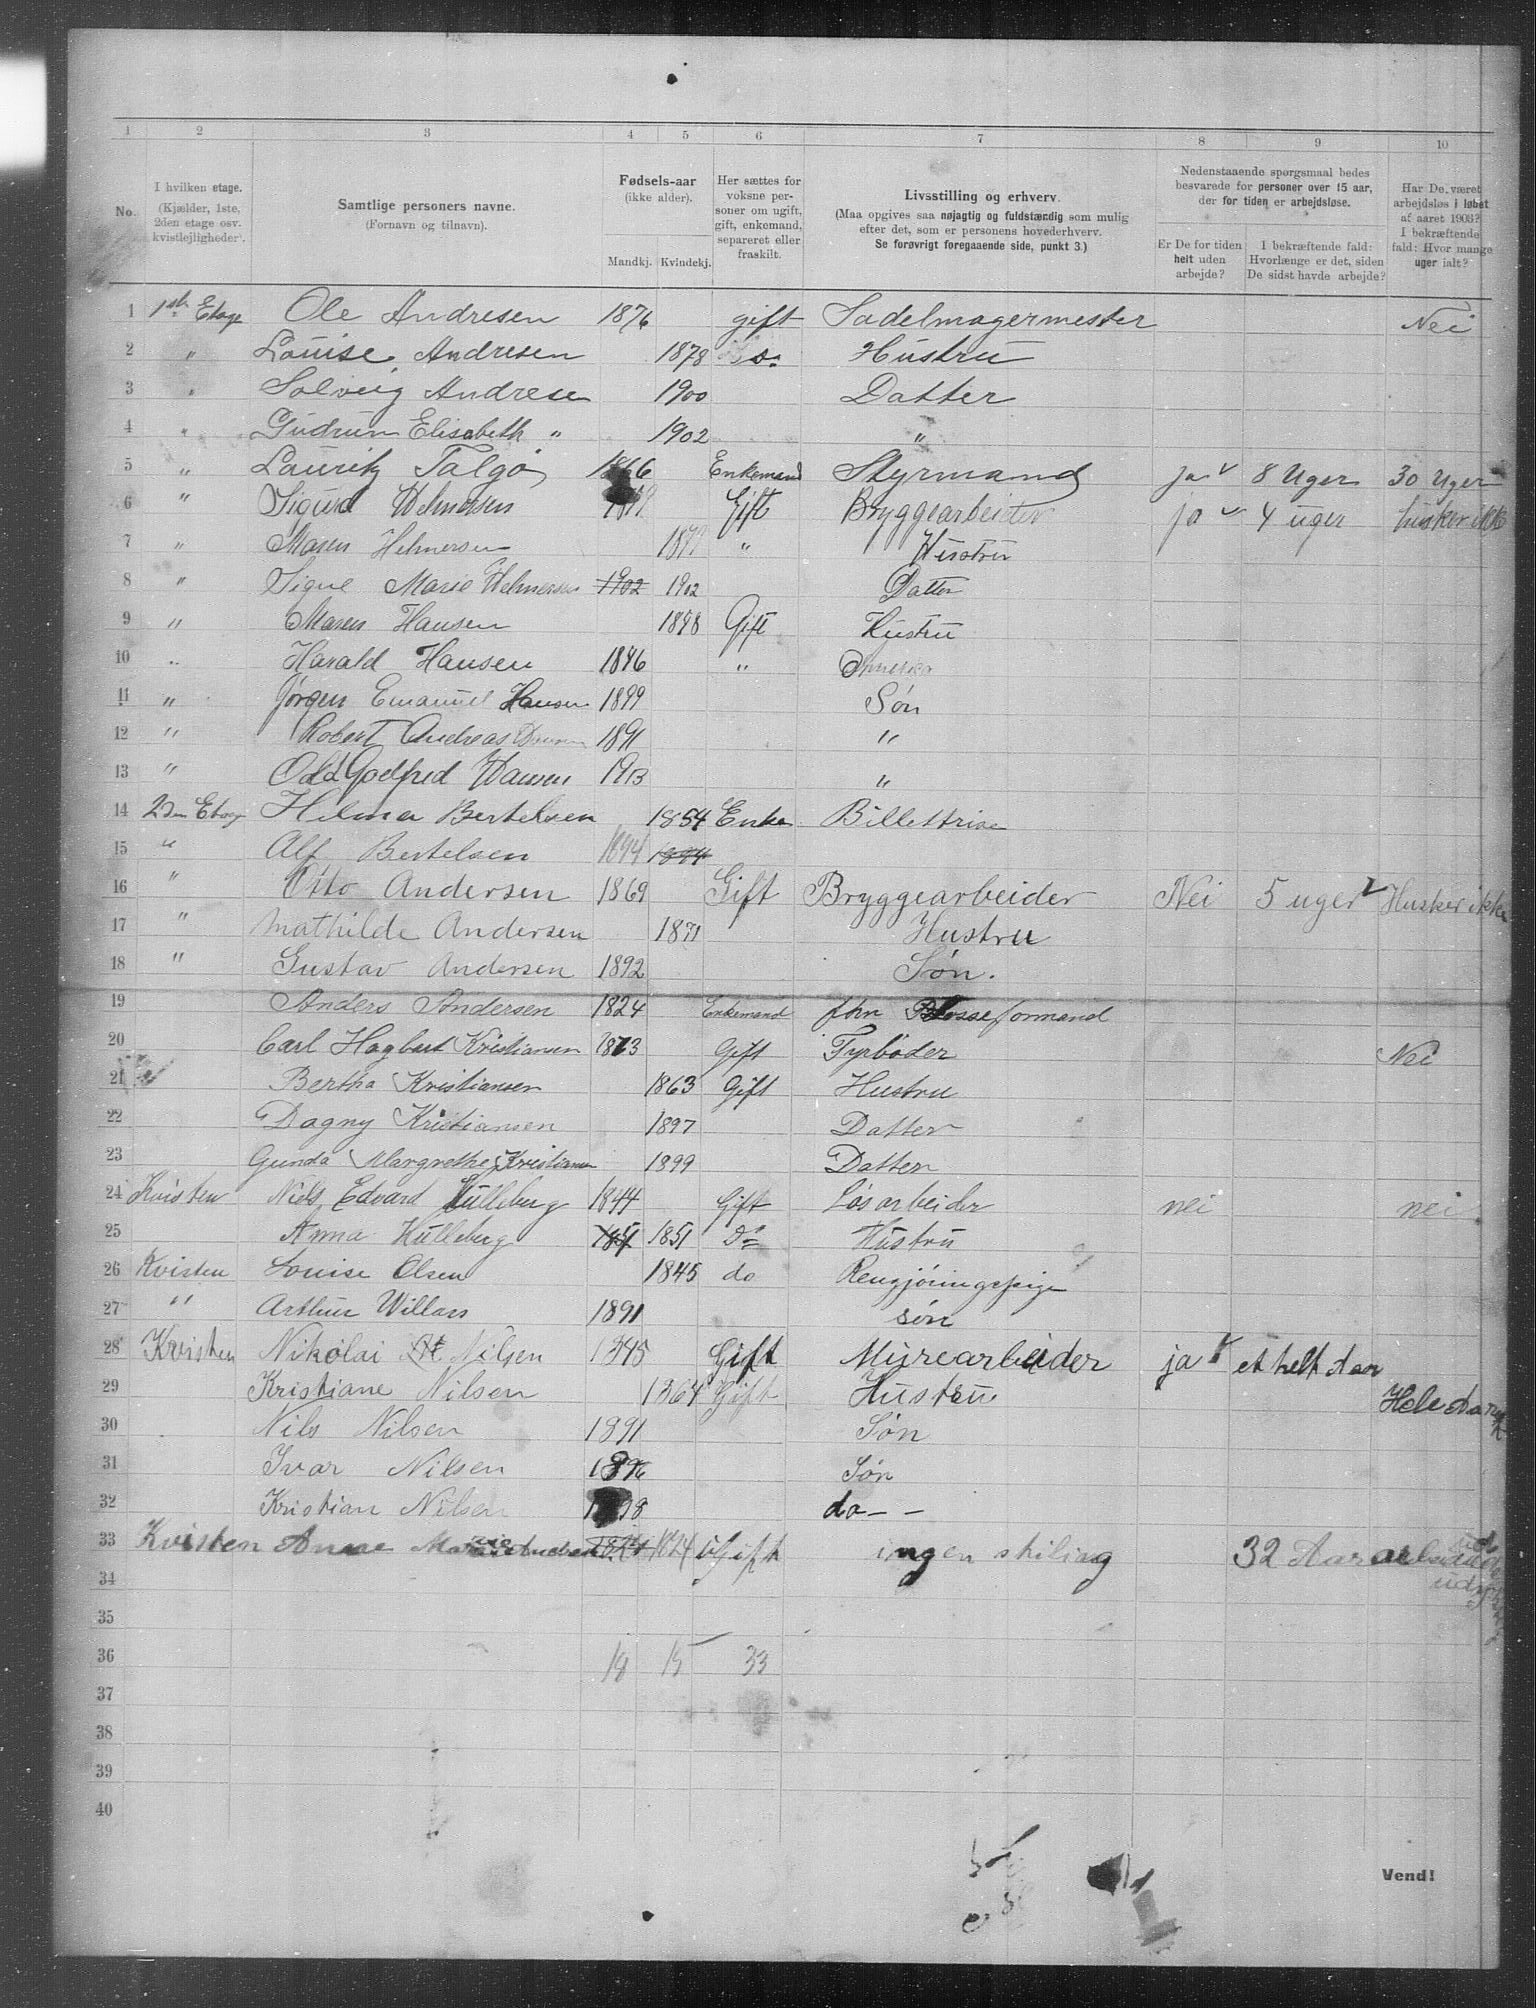 1 2 3 4 5 6 7 8 9 10
No. I hvilken etage. (Kjælder, 1ste, 2den etage osv. kvistlejligheder).
Samtlige personers navne. (Fornavn og tilnavn).
Fødsels-aar (ikke alder). Mandkj. Kvindekj.
Her sættes for voksne personer om ugift, gift, enkemand, separeret eller fraskilt.
Livsstilling og erhverv. (Maa opgives saa nøjagtig og fuldstændig som mulig efter det, som er personens hovederhverv. Se forøvrigt foregaaende side, punkt 3.)
Nedenstaaende spørgsmaal bedes besvarede for personer over 15 aar, der for tiden er arbejdsløse.
Er De for tiden helt uden arbejde?
I bekræftende fald: Hvorlænge er det, siden De sidst havde arbejde?
Har De været arbejdsløs i løbet af aaret 1903? I bekræftende fald: Hvor mange uger ialt?
1 1ste Etage Ole Andresen 1876 gift Sadelmagermester Nei
2 " Louise Andresen 1878 Hustru
3 " Solveig Andresen 1900 Datter
4 " Gudrun Elisabeth " 1902 "
5 " Lauritz Talgø 1866 Enkemand Styrmand ja 8 Uger 30 Uger
6 " Sigurd Helmersen Gift Bryggearbeider ja 4 uger husker ikke
7 " Maren Helmersen 1879 " Hustru
8 " Signe Marie Helmersen 1902 1902 Datter
9 " Maren Hansen Gift Hustru
10 " Harald Hansen "
11 " Jørgen Emanuel Hansen 1899 Søn
12 " Robert Andreas 1891 "
13 " Odd Godfred Hansen 1903 "
14 2den Etage Helma Bertelsen 1854 Enke Billettrise
15 " Alf Bertelsen 1894 1894
16 " Otto Andersen 1869 Gift Bryggearbeider Nei 5 uger Husker ikke
17 " Mathilde Andersen 1871 Hustru
18 " Gustav Andersen 1892 Søn.
19 Anders Andersen 1824 Enkemand fhv Bosseformand
20 Carl Hagbart Kristiansen 1873 Gift Fyrbøder Nei
21 Bertha Kristiansen 1863 Gift Hustru
22 Dagny Kristiansen 1897 Datter
23 Gunda Margrethe Kristiansen 1899 Datter
24 Kvisten Niels Edvard Hulleberg 1844 Gift Løsarbeider nei nei
25 Anna Hulleberg 1851 1851 Do Hustru
26 Kvisten Louise Olsen 1845 do Rengjøringspige
27 " Arthur Willars 1891 søn
28 Kvisten Nikolai Nilsen 1845 Gift Murearbeider ja et helt Aar
29 Kristiane Nilsen 1864 Gift Hustru Hele Aaret
30 Nils Nilsen 1891 Søn
31 Ivar Nilsen 1896 Søn
32 Kristian Nilsen do - -
33 Kvisten Anne Marie 1824 1824 Ugift ingen stiling 32 Aar
34
35
36 18 15 33
37
38
39
40
Vend!